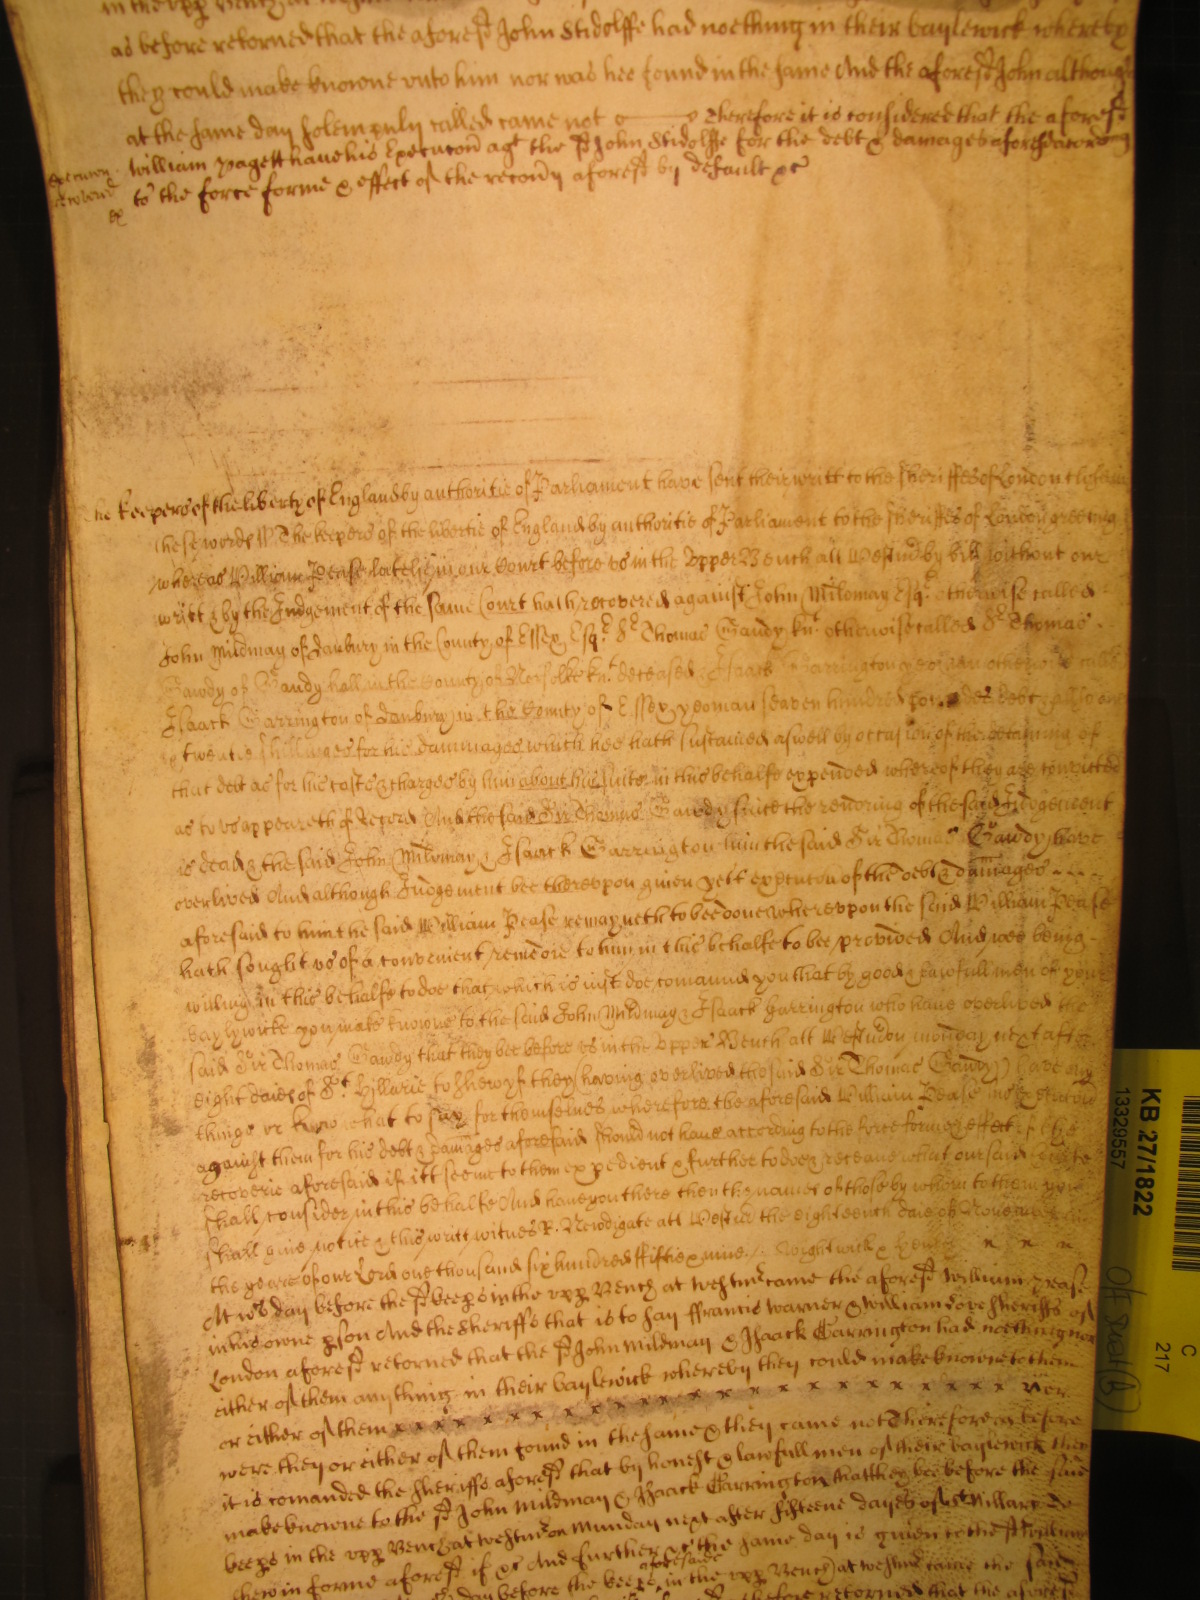 as before retorned that the aforesd John Stidolffe had noething in their baylewick whereby
they could make knowne vnto him nor was hee found in the same And the aforesd John although
at the same day solempnly called came not therefore it is considered that the aforesd
William Pagett haue his Execucon agt the sd John Stidolffe for the debt & damages aforesd accord
to the force forme & effect of the recovry aforesd by default &c
he Keepers of the liberty of England by authoritie of Parliament have sent their writt to the Sheriffes of London
these words The keepers of the libertie of England by authoritie of Parliament to the Sheriffes of London greeting
whereas William Pease latelie in our Court before vs in the Vpper Bench att Westmr by bill without our
writt & by the Judgement of the same Court hath recovered against John Mildmay Esqr. otherwise called
John Mildmay of Danbury in the County of Essex Esqr. Sr. Thomas Gawdy knt. otherwise called Sr. Thomas
Gawdy of Gawdy hall in the County of Norfolke knt. deceased & Isaack Barrington yeoman otherwise called
Isaack Barrington of Danbury in the County of Essex yeoman seaven hundred debt
twentie shillinges for his dammages which hee hath sustained aswell by occasion of the detaining of
that debt as for his costes & charges by him about his suite in this behalfe expended whereof they are convicted
as to vs appeareth of Record And the said Sir Thomas Gawdy since the rendring of the said Judgement
is dead & the said John Mildmay & Isaack Barrington him the said Sir Thomas Gawdy have
overlived And although Judgement bee therevpon given yett execucon of the debt & damages
aforesaid to him the said William Pease remayneth to bee done wherevpon the said William Pease
hath sought vs of a convenient remedie to him in this behalfe to bee provided And wee being
willing in this behalfe to doe that which is just doe comaund you that by good & lawfull men of your
baylywicke you make knowne to the said John Mildmay & Isaack Barrington who have overlived the
said Sir Thomas Gawdy that they bee before vs in the Vpper Bench att Westmr on munday next after
eight daies of St. Hillarie to shew if they (having overlived the said Sir Thomas Gawdy) have any
thinge or know what to say for themselves wherefore the aforesaid William Pease his execucon
against them for his debt & damages aforesaid should not have according to the force forme & effect of the
recoverie aforesaid if itt seeme to them expedient & further to doe & receave what our said Courte
shall consider in this behalfe And have you there then the names of those by whom to them you
shall give notice & this writt witnes R. Newdigate att Westmr the eighteenth daie of November in
the yeare of our Lord one thousand six hundred fiftie & nine. Wightwick & Henley
At wch day before the sd keepers in the vpp Bench at westmr came the aforesd William Pease
in his owne pson And the Sheriffs that is to say ffrancis Warner & William Love Sheriffs of
London aforesd retorned that the sd John Mildmay & Isaack Barrington had noething nor
either of them any thing in their baylewick whereby they could make knowne to them
or either of them x x x x x x x x x x x x x x x x x x nor
were they or either of them found in the same & they came not Therefore as before
it is comanded the sheriffs aforesd that by honest & lawfull men of their baylewick they
make knowne to the sd John Mildmay & Isaack Barrington that they bee before the said
keeps in the vpp Bench at westmr on Munday next after fifteene dayes of St Hillary to
shew in forme aforesd if &c And further &c the same day is given to the sd William
day before the keeps aforesaid in the vpp Bench at westmr came the said
before retorned that the aforesd
KB 27/1822
13329557
C
217